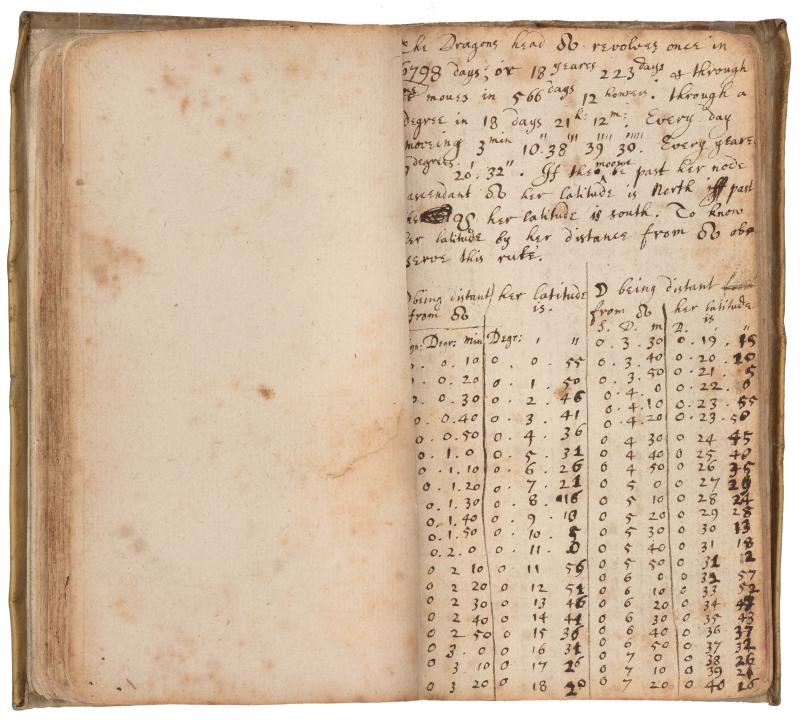 The Dragons head ☊ revolves once in
6798 days; or 18 yeares 223 days & through
moves in 566 days 12 howers. through a
degree in 18 days 21h: 12m: Every day
moveing 3 min 10'' 38''' 39'''' 30'''''. Every yeare
degrees: 20'. 32''. If the moone be past her node
ascendant ☊ her latitude is North if past
the ☋ her latitude is south. To know
her latitude by her distance from ☊ ob=
serve this rule.
☽ being distant from ☊ | her latitude is. | ☽ being distant from ☊ | her latitude is
Degr: Min | Degr: ' '' | S. D. m | D. ' ''
0. 0. 10 | 0. 0. 55 | 0. 3. 30 | 0. 19. 15
0. 0. 20 | 0. 1. 50 | 0. 3. 40 | 0. 20. 10
0. 0. 30 | 0. 2. 46 | 0. 3. 50 | 0. 21. 5
0. 0. 40 | 0. 3. 41 | 0. 4. 0 | 0. 22. 0
0. 0. 50 | 0. 4. 36 | 0. 4. 10 | 0. 23. 55
0. 1. 0 | 0. 5. 31 | 0. 4. 20 | 0. 23. 50
0. 1. 10 | 0. 6. 26 | 0 4 30 | 0 24 45
0. 1. 20 | 0. 7. 21 | 0 4 40 | 0 25 40
0. 1. 30 | 0. 8. 16 | 0 4 50 | 0 26 35
0. 1. 40 | 0. 9. 10 | 0 5 0 | 0 27 29
0. 1. 50 | 0. 10. 5 | 0 5 10 | 0 28 24
0. 2. 0 | 0. 11. 0 | 0 5 20 | 0 29 28
0 2 10 | 0 11 56 | 0 5 30 | 0 30 13
0 2 20 | 0 12 51 | 0 5 40 | 0 31 18
0 2 30 | 0 13 46 | 0 5 50 | 0 31 2
0 2 40 | 0 14 41 | 0 6 0 | 0 32 57
0 2 50 | 0 15 36 | 0 6 10 | 0 33 52
0 3. 0 | 0 16 31 | 0 6 20 | 0 34
0 3 10 | 0 17 26 | 0 6 30 | 0 35 43
0 3 20 | 0 18 20 | 0 6 40 | 0 36 37
0 6 50 | 0 37 32
0 7 0 | 0 38 26
0 7 10 | 0 39 21
0 7 20 | 0 40 16